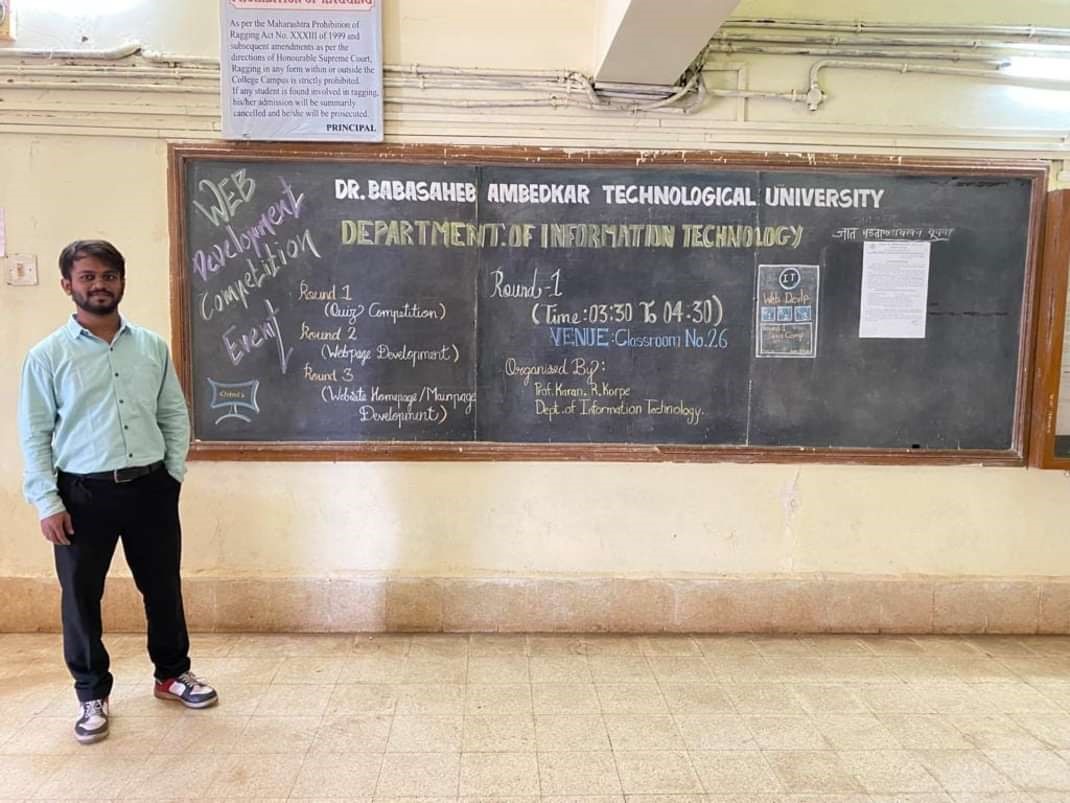 PROHIBITION OF RAGGING
As per the Maharashtra Prohibition of
Ragging Act No. XXXIII of 1999 and
subsequent amendments as per the
directions of Honourable Supreme Court,
Ragging in any form within or outside the
College Campus is strictly prohibited.
If any student is found involved in ragging,
his/her admission will be summarily
cancelled and he/she will be prosecuted.
PRINCIPAL
WEB
Development
Competition
Event
DR. BABASAHEB AMBEDKAR TECHNOLOGICAL UNIVERSITY
DEPARTMENT OF INFORMATION TECHNOLOGY
Round 1
(Quiz Competition)
Round 2
(Webpage Development)
Round 3
(Website Homepage/Mainpage
Development)
Round-1
(Time:03:30 To 04.30)
VENUE:Classroom No.26
Organised By:
Prof. Karan. R. Korpe
Dept. of Information Technology.
IT
Web Devlp
जात